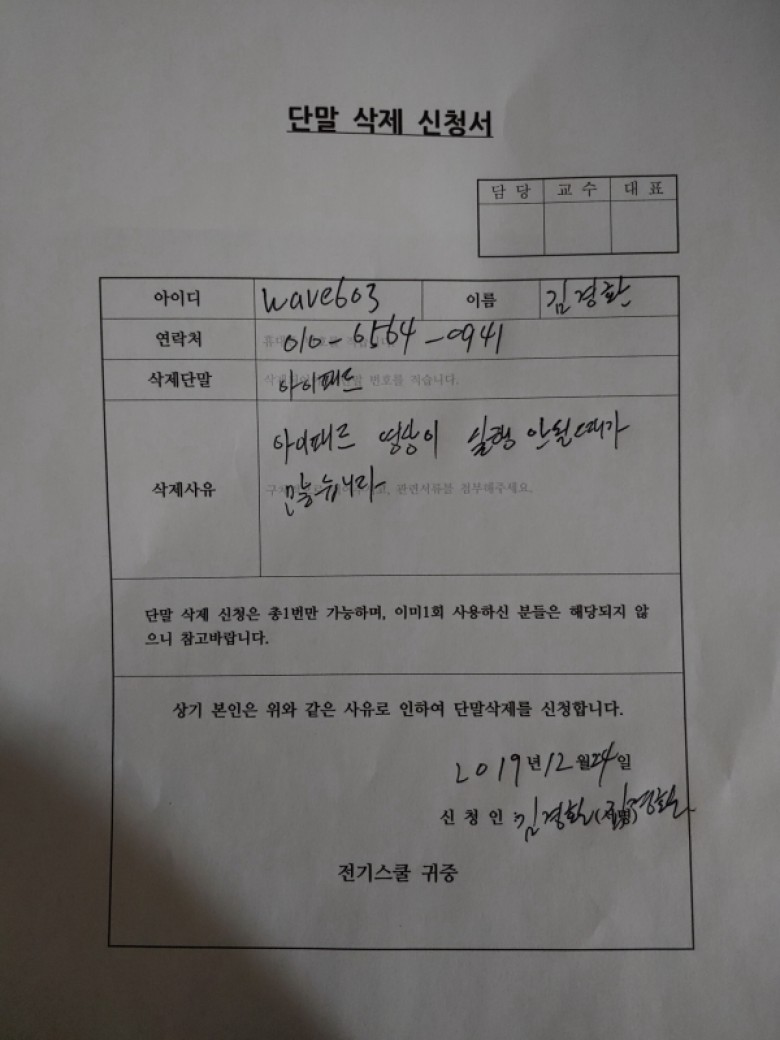 단말 삭제 신청서
담 당 교 수 대 표
아이디 wave603 이름 김경환
연락처 010-6564-0941
삭제단말 아이패드 번호를 적습니다.
삭제사유
아이패드 영상이 실행 안될때가
많습니다
관련서류를 첨부해주세요.
단말 삭제 신청은 총1번만 가능하며, 이미1회 사용하신 분들은 해당되지 않
으니 참고바랍니다.
상기 본인은 위와 같은 사유로 인하여 단말삭제를 신청합니다.
2019년 12월 24일
신 청 인 : 김경환 김경환
전기스쿨 귀중